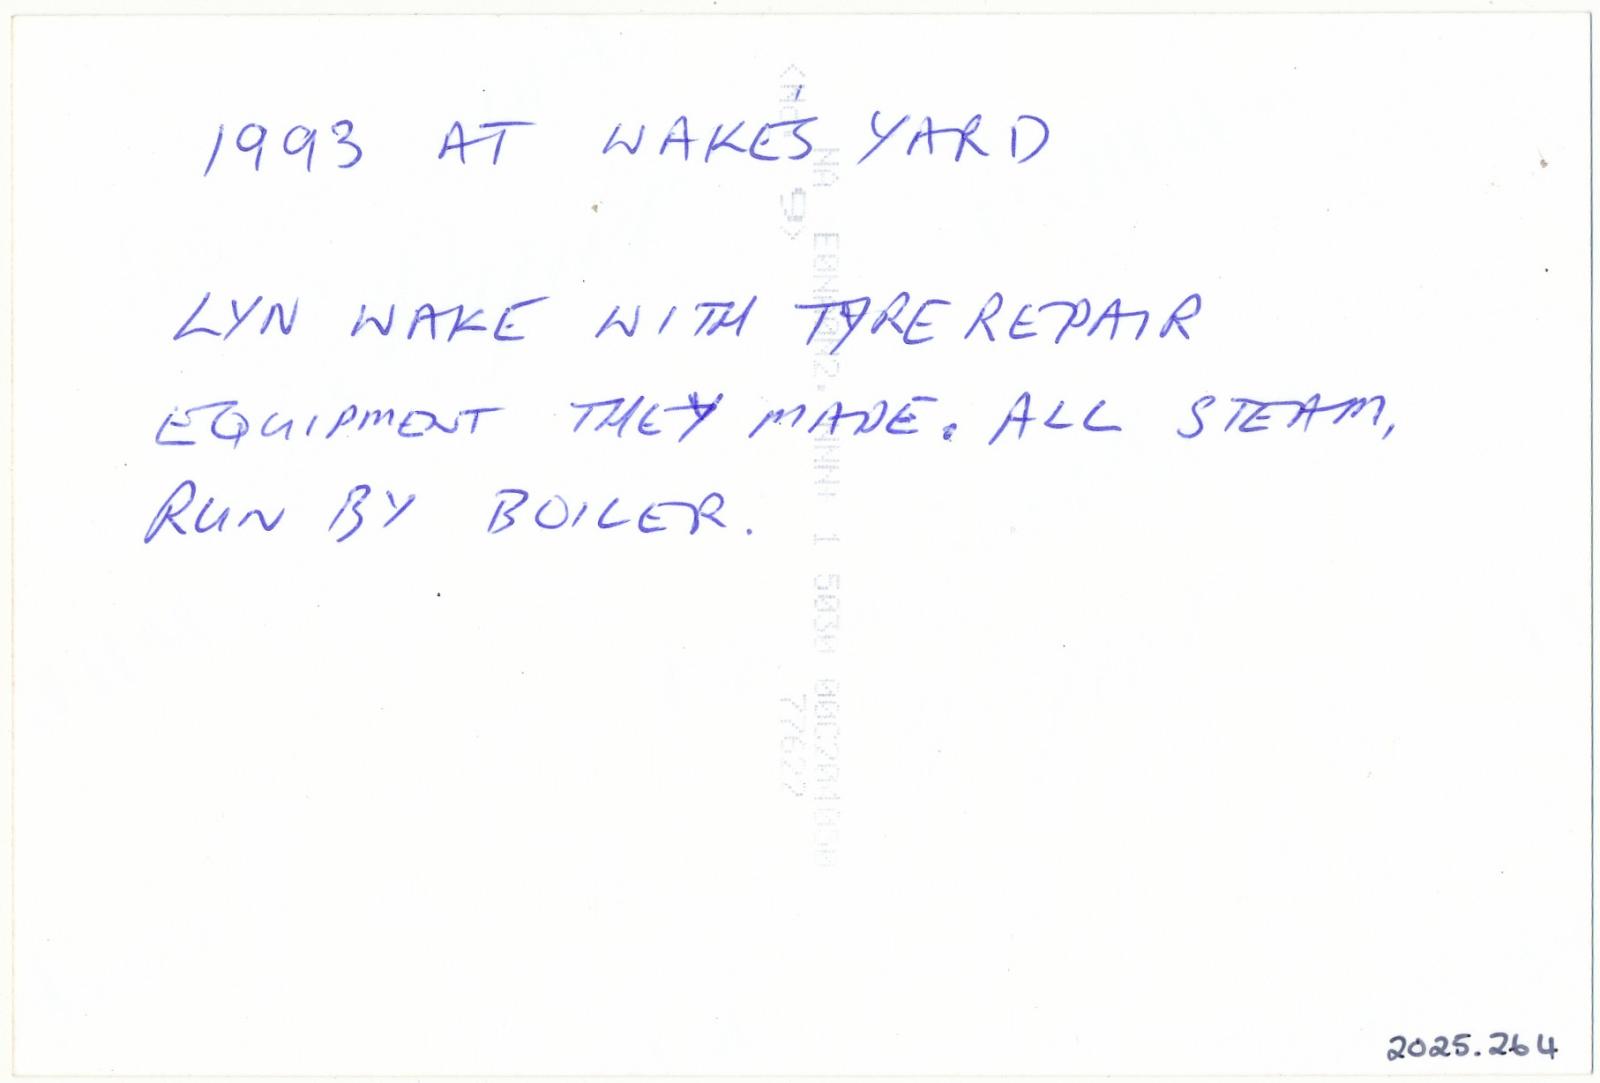 1993 AT WAKE'S YARD
LYN WAKE WITH TYRE REPAIR
EQUIPMENT THEY MADE. ALL STEAM,
RUN BY BOILER.
2025.264